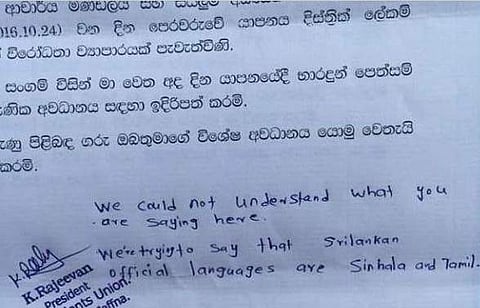 ආචාර්ය මණ්ඩලය සහ
016.10.24) වන දින පෙරවරුවේ යාපනය දිස්ත්‍රික් ලේකම්
විරෝධතා ව්‍යාපාරයක් පැවැත්විණි.
සංගම් විසින් මා වෙත අද දින යාපනයේදී භාරදුන් පෙත්සම්
ණික අවධානය සඳහා ඉදිරිපත් කරමි.
රුණු පිළිබඳ ගරු ඔබතුමාගේ විශේෂ අවධානය යොමු වෙතැයි
කරමි.
We could not understand what you
are saying here.
We're trying to say that Srilankan
official languages are Sinhala and Tamil.
K. Rajeevan
President
ents Union
Jaffna.